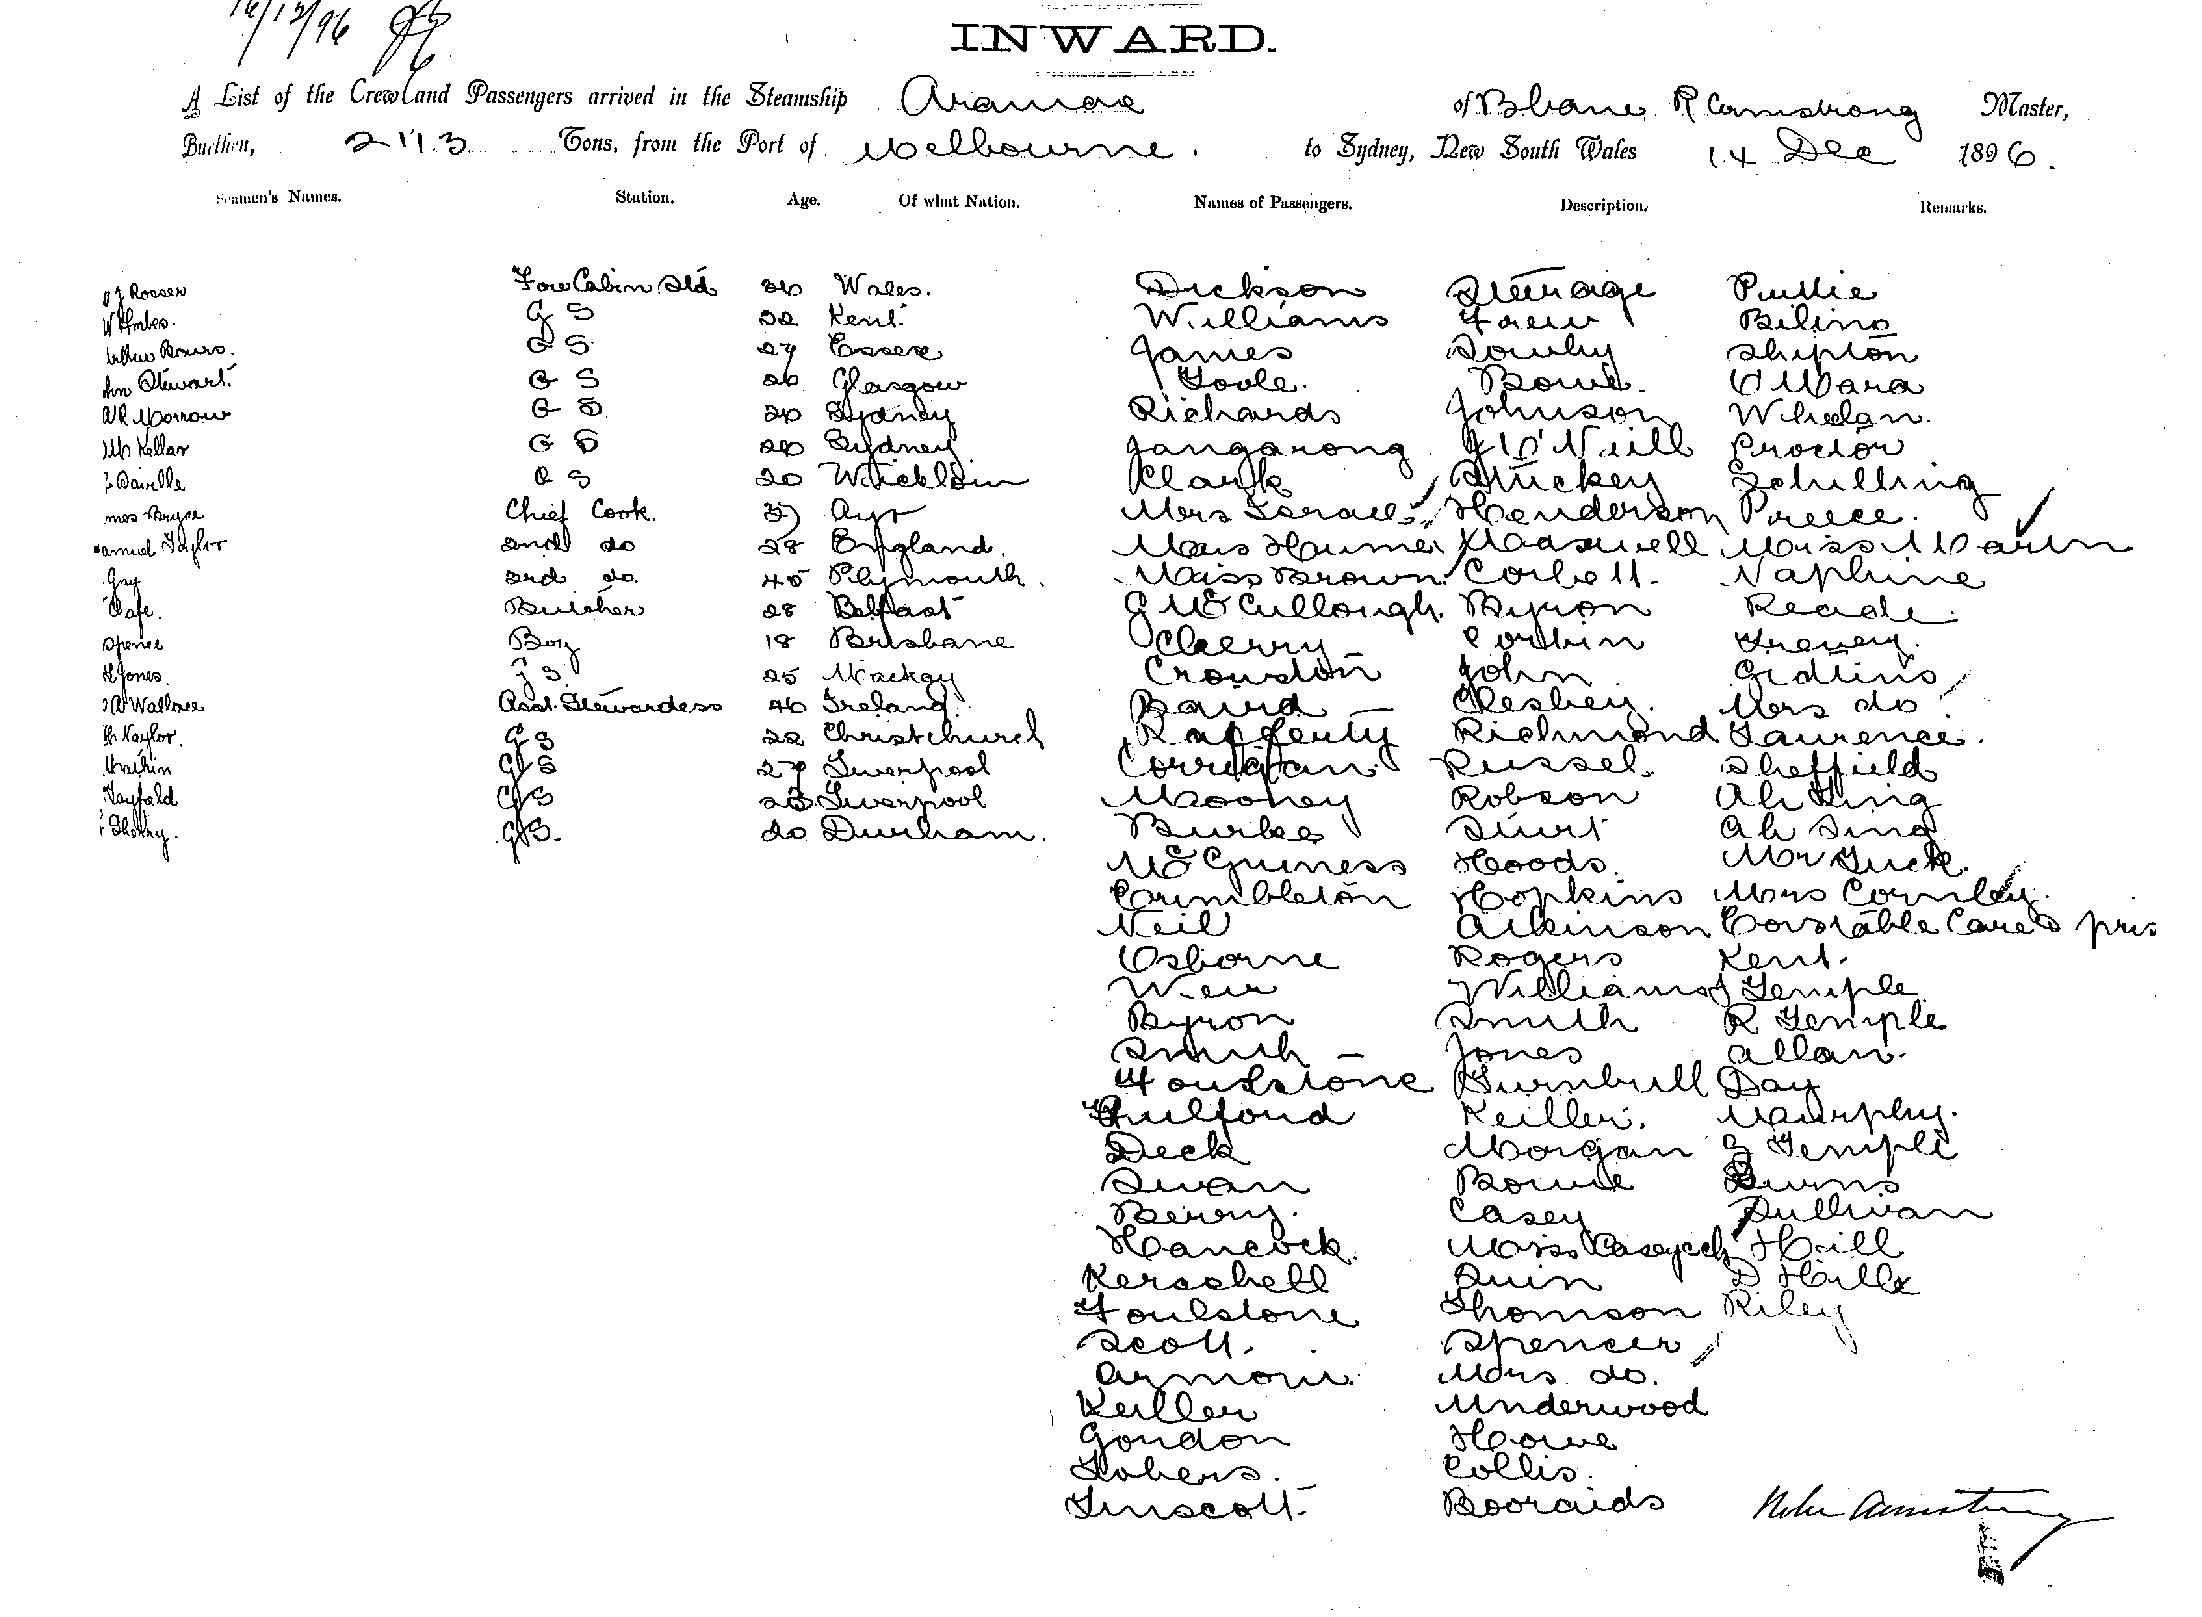 16/12/96
INWARD.
A List of the Crew and Passengers arrived in the Steamship Aramac of Bbane R Armstrong Master,
Burthen, 2113 Tons, from the Port of Melbourne. to Sydney, New South Wales 14 Dec 1896.
Seamen's Names. Station. Age. Of what Nation. Names of Passengers. Description. Remarks.
J Rosser Fore Cabin Std Wales. Dickson Steerage
W Forbes. G S 22 Kent. Williams
Bowrs. G S 27 Essex James Sowby Shipton
Stewart. G S 26 Glasgow Toole. Bowie. O'Mara
Morrow G S 20 Sydney Richards Johnson Whelan.
Kellar G S 20 Sydney Jangarong J O'Neill Proctor
G S 20 Wicklow Clark Stuckey Schilling
Bryce Chief Cook. Ayr Mrs Israel Henderson Preece.
amuel Taylor 2nd do 28 England. Miss Hume Maxwell Miss Martin
Gay 3rd do 45 Plymouth. Miss Brown Corbett. Naphine
Cafe. Butcher 28 Belfast G McCullough. Byron Reade.
Spence Boy 18 Brisbane Cherry Corbin
Jones. G S 25 Mackay Crowston John
Wallace Asst Stewardess 40 Ireland. Baird Clesbey. Mrs do.
Naylor. G S 22 Christchurch Rafferty Richmond Laurence.
G S 27 Liverpool Corrigan Russel. Sheffield
Hayfield G S Liverpool Mooney Robson Ah Ling
G S. do Durham. Burke Sturt Ah Sing
McGuiness Hoods. Mr Tuck.
Crimbleton Hopkins Mrs Cornley.
Neil Atkinson Constable Care & pris
Osborne Rogers Kent.
Weir Williams J Temple
Byron Smith R Temple
Smith Jones Allan.
Foulstone Turnbull Day
Fhulford Keiller. Murphy.
Deck Morgan J Temple
Swan Bowie Burns
Berry. Casey Sullivan
Hancock. Miss Casey ch Hill
Kerschell Quin D Hill
Foulstone Thomson Riley
Scott. Spencer
Armour. Mrs do.
Keiller Underwood
Gordon Howe
Tobers. Collis.
Tinscott. Booraids Armstrong